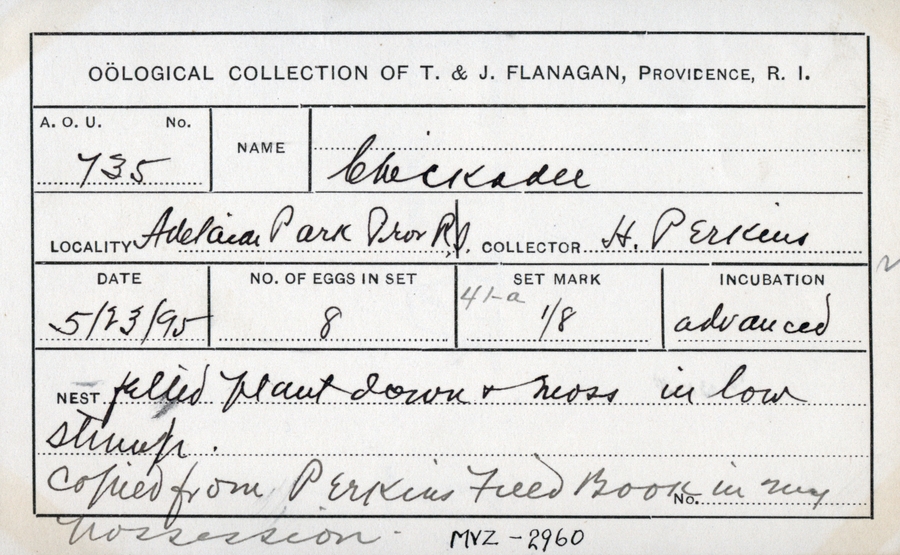 OÖLOGICAL COLLECTION OF T. & J. FLANAGAN, PROVIDENCE, R. I.
A. O. U. No. 735 NAME Chickadee
LOCALITY Adelaide Park Prov R.I. COLLECTOR H. Perkins
DATE 5/23/95 NO. OF EGGS IN SET 8 SET MARK 41-a 1/8 INCUBATION advanced
NEST felted plant down & moss in low
stump.
Copied from Perkins Field Book No. in my
possession.
MVZ-2960